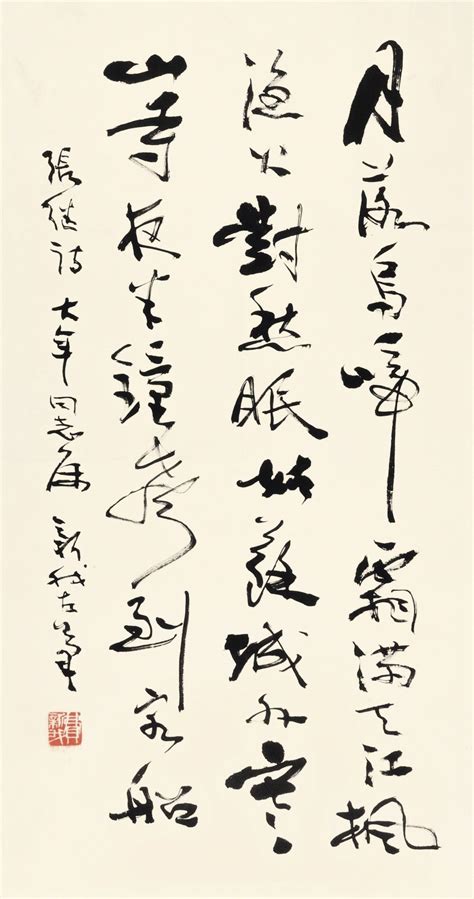 月落烏啼霜滿天江楓
漁火對愁眠姑蘇城外寒
山寺夜半鐘聲到客船
張继诗 大年同志属 新我左笔
費新我